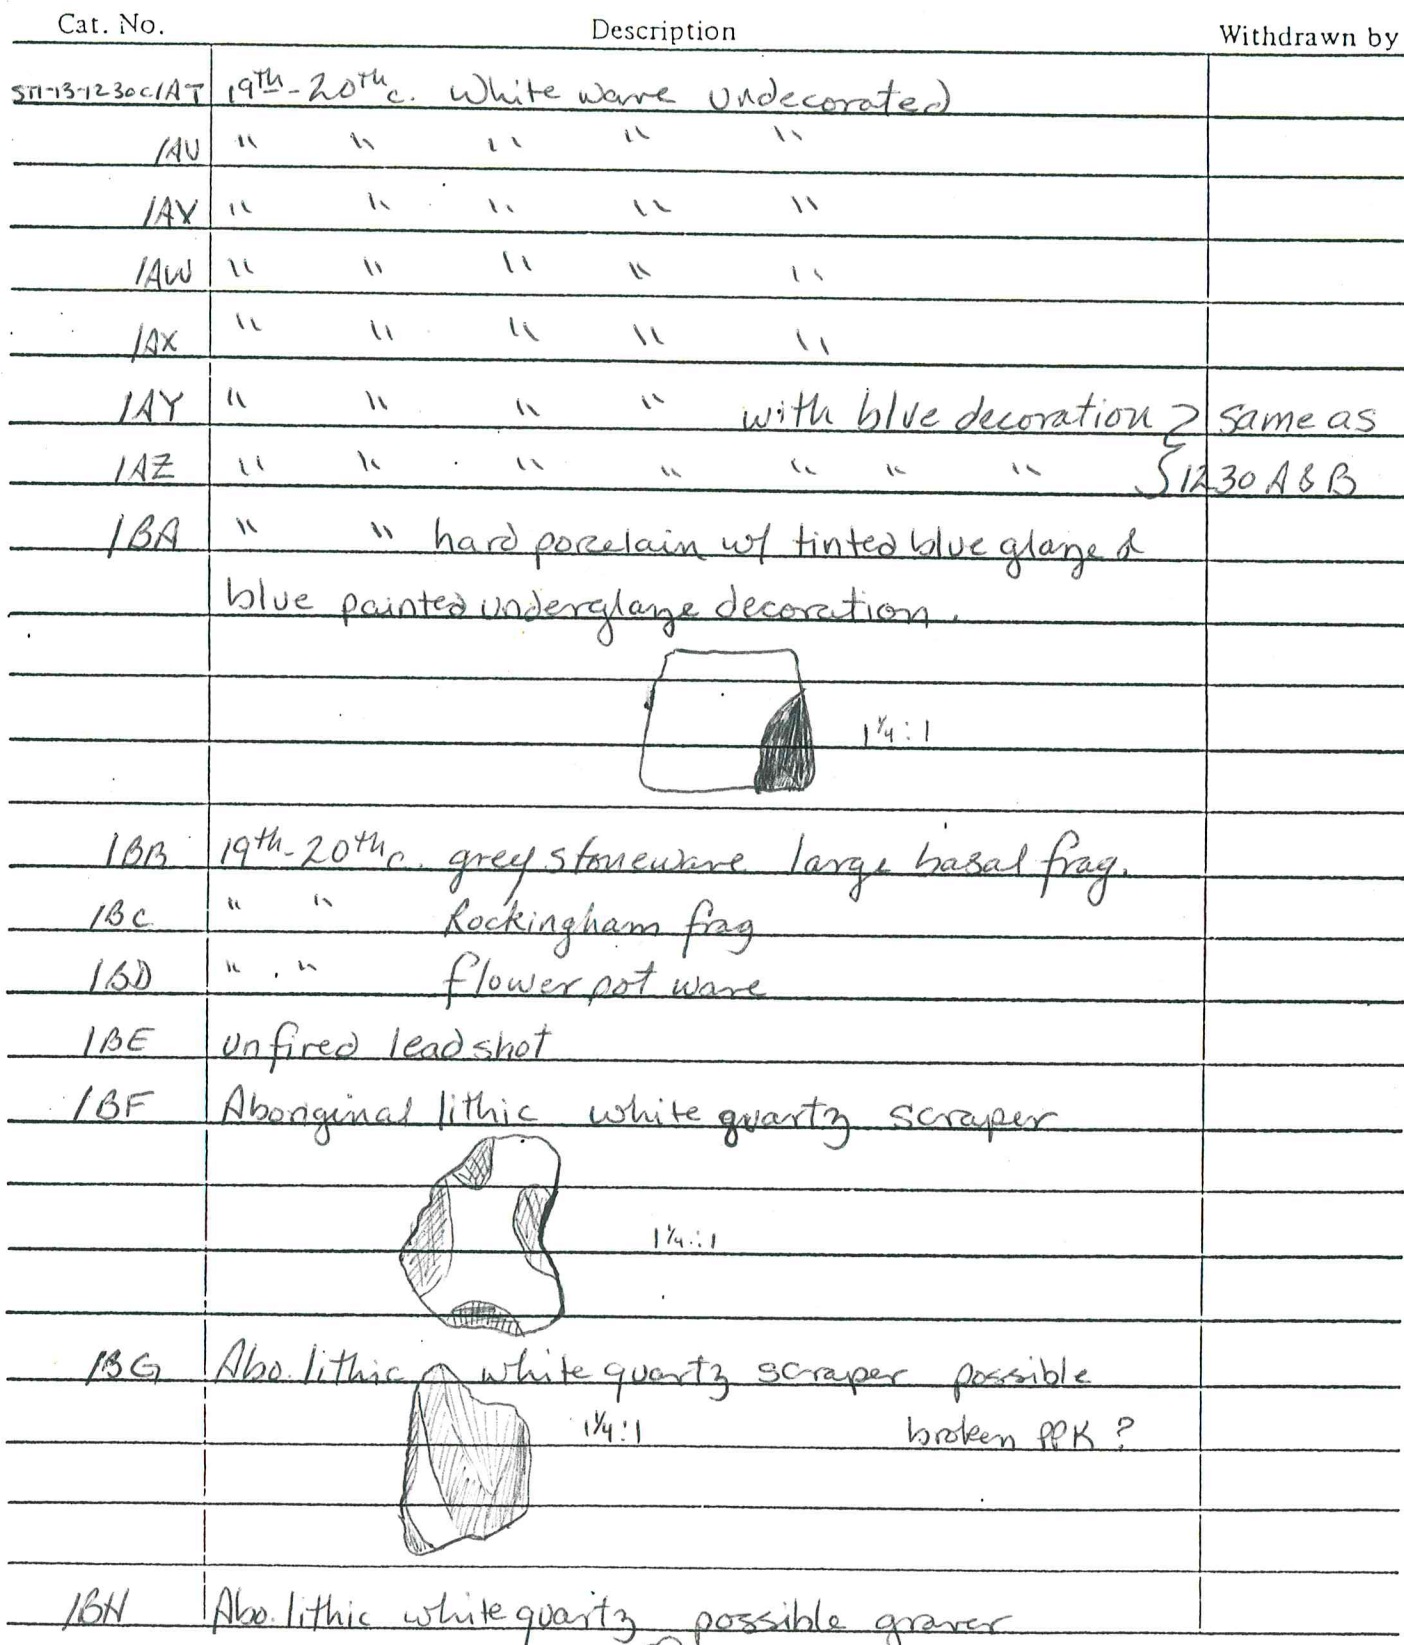 Cat. No. Description Withdrawn by
STI-13-1230c/AT 19th-20th c. White ware Undecorated
/AU " " " " "
/AV " " " " "
/AW " " " " "
/AX " " " " "
/AY " " " " with blue decoration } same as
/AZ " " " " " " " } 1230 A & B
/BA " " hard porcelain w/ tinted blue glaze &
blue painted underglaze decoration.
1¼:1
/BB 19th-20th c. grey stoneware large basal frag.
/BC " " Rockingham frag
/BD " " flower pot ware
/BE unfired lead shot
/BF Aboriginal lithic white quartz scraper
1¼:1
/BG Abo. lithic white quartz scraper possible
1¼:1 broken PPK ?
/BH Abo. lithic white quartz possible graver